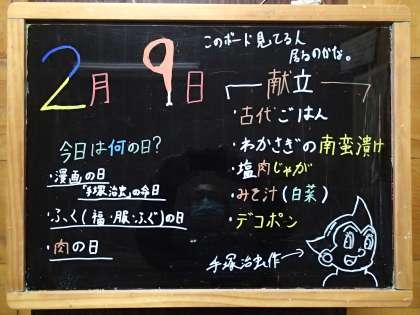 このボード見てる人
居るのかな。
2月9日
献立
・古代ごはん
・わかさぎの南蛮漬け
・塩肉じゃが
・みそ汁(白菜)
・デコポン
今日は何の日?
・漫画の日
「手塚治虫」の命日
・ふく(福・服・ふぐ)の日
・肉の日
手塚治虫作→